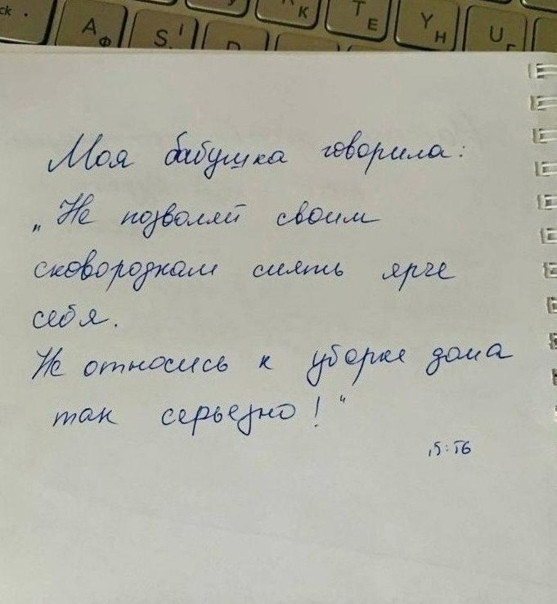 ck
A Ф
S I
K
T E
Y Н
U Г
Моя бабушка говорила:
„Не позволяй своим
сковородкам сиять ярче
себя.
Не относись к уборке дома
так серьезно!"